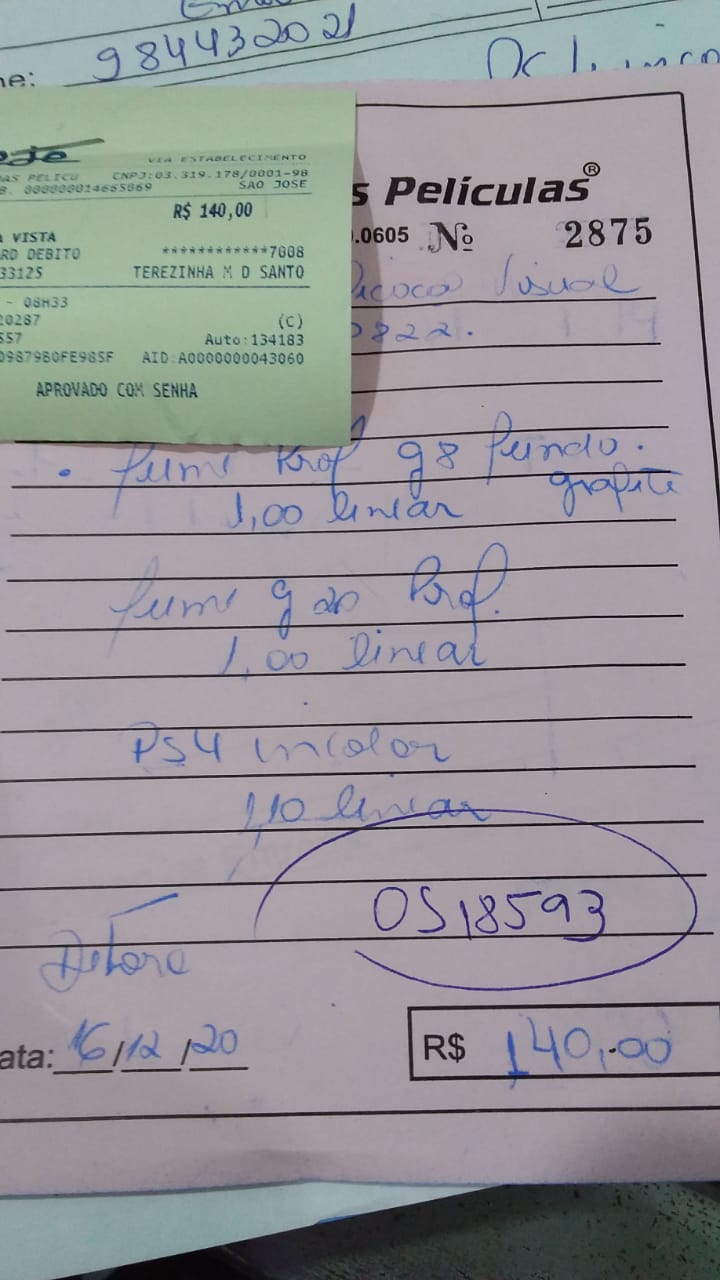 984432021
ne:
VIA ESTABELECIMENTO
AS PELICU CNPJ:03.319.178/0001-98
B. 000000014665869 SAO JOSE
R$ 140,00
A VISTA
RD DEBITO ************7008
33125 TEREZINHA M D SANTO
- 08H33
20287 (C)
557 Auto:134183
09879B0FE985F AID:A0000000043060
APROVADO COM SENHA
s Películas®
.0605 Nº 2875
Visual
0822.
• fumê Prof g8 fundo.
1,00 linear grafite
fumê g20 Prof.
1,00 linear
PS4 incolor
1,10 linear
OS18593
ata: 16/12/20
R$ 140,00